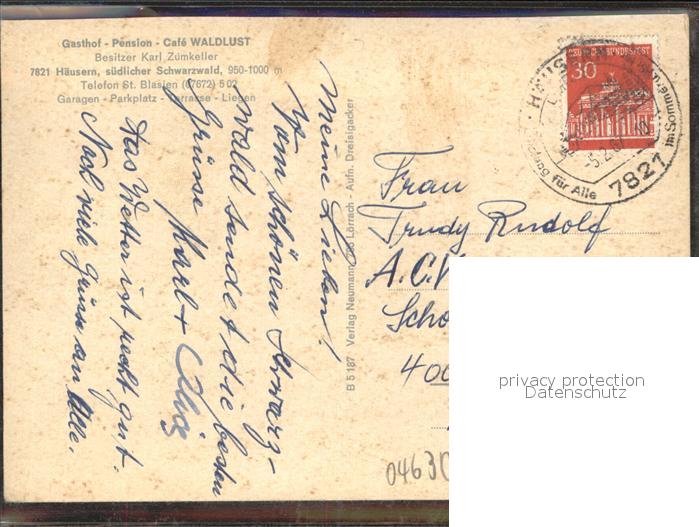 Gasthof - Pension - Café WALDLUST
Besitzer Karl Zumkeller
7821 Häusern, südlicher Schwarzwald, 950-1000 m
Telefon St. Blasien (07672) 502
Garagen - Parkplatz - Terrasse - Liegen
Meine Lieben!
Vom schönen Schwarz-
wald sendet die besten
Grüsse Karl +
Das Wetter ist recht gut.
Noch viele Grüsse an Alle.
B 5187 Verlag Neumann, Lörrach - Aufn. Dreisigacker
DEUTSCHE BUNDESPOST
30
HÄUS
für Alle
7821
im Sommer u.
Frau
Trudy Rudolf
A.C.
Scho
400
0463
privacy protection
Datenschutz